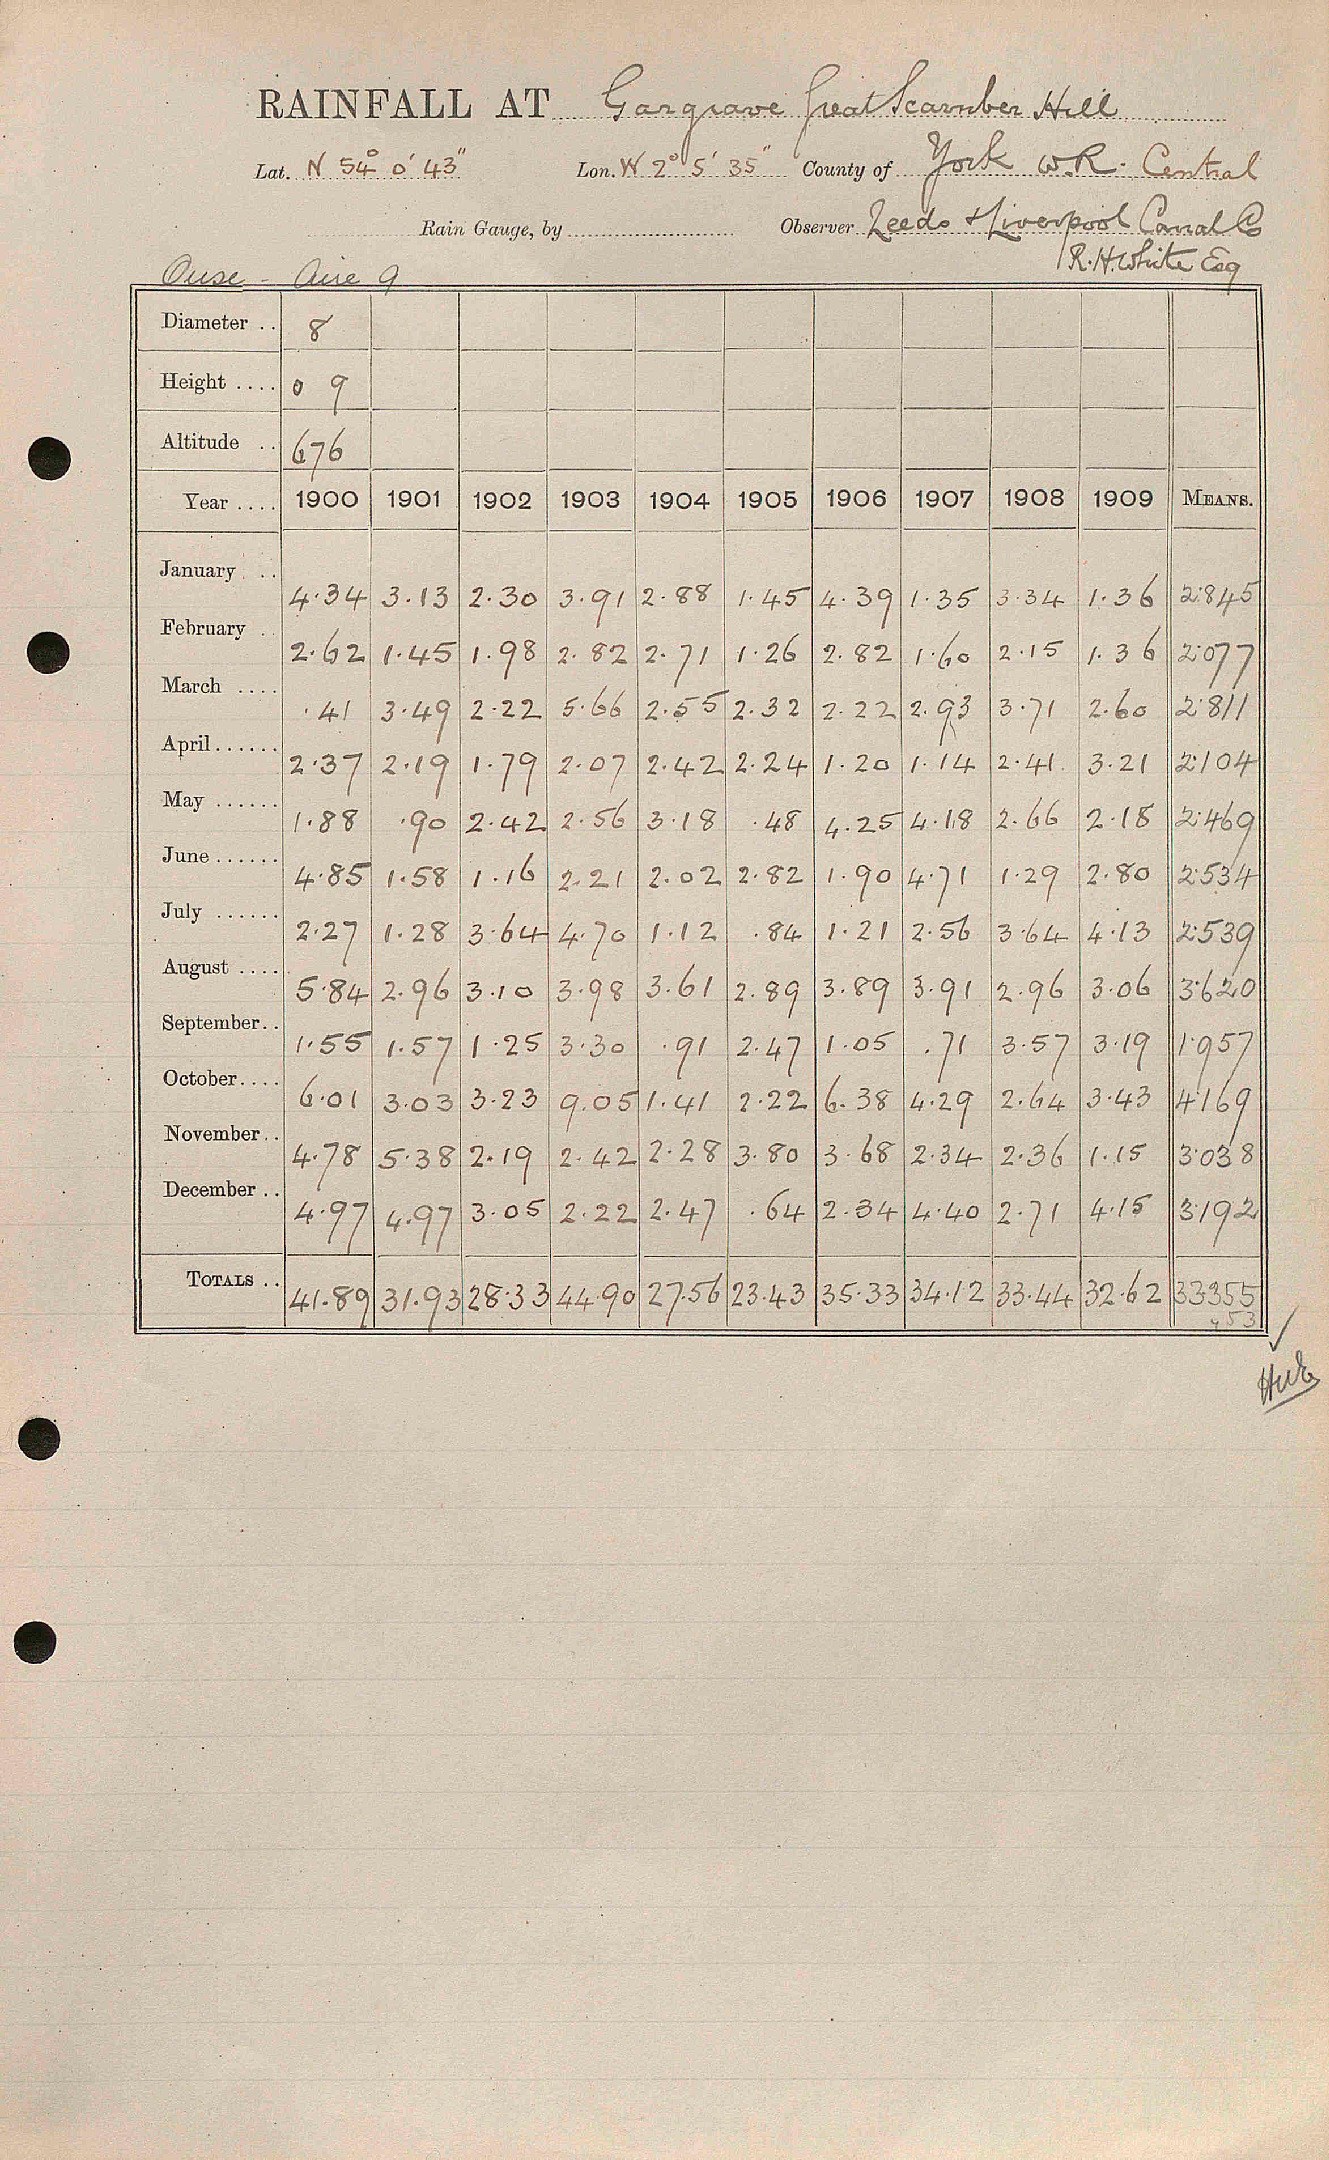 RAINFALL AT Gargrave Great Scamber Hill
Lat. N 54° 0' 43" Lon. W 2° 5' 35" County of York W.R. Central
Rain Gauge, by Observer Leeds & Liverpool Canal Co
R. H. White Esq
Ouse - Aire 9
Diameter .. 8
Height .... 0 9
Altitude .. 676
Year .... 1900 1901 1902 1903 1904 1905 1906 1907 1908 1909 MEANS.
January .. 4.34 3.13 2.30 3.91 2.88 1.45 4.39 1.35 3.34 1.36 2.845
February .. 2.62 1.45 1.98 2.82 2.71 1.26 2.82 1.60 2.15 1.36 2.077
March .... .41 3.49 2.22 5.66 2.55 2.32 2.22 2.93 3.71 2.60 2.811
April ...... 2.37 2.19 1.79 2.07 2.42 2.24 1.20 1.14 2.41 3.21 2.104
May ...... 1.88 .90 2.42 2.56 3.18 .48 4.25 4.18 2.66 2.18 2.469
June ...... 4.85 1.58 1.16 2.21 2.02 2.82 1.90 4.71 1.29 2.80 2.534
July ...... 2.27 1.28 3.64 4.70 1.12 .84 1.21 2.56 3.64 4.13 2.539
August .... 5.84 2.96 3.10 3.98 3.61 2.89 3.89 3.91 2.96 3.06 3.620
September .. 1.55 1.57 1.25 3.30 .91 2.47 1.05 .71 3.57 3.19 1.957
October .... 6.01 3.03 3.23 9.05 1.41 2.22 6.38 4.29 2.64 3.43 4.169
November .. 4.78 5.38 2.19 2.42 2.28 3.80 3.68 2.34 2.36 1.15 3.038
December .. 4.97 4.97 3.05 2.22 2.47 .64 2.34 4.40 2.71 4.15 3.192
TOTALS .. 41.89 31.93 28.33 44.90 27.56 23.43 35.33 34.12 33.44 32.62 33355